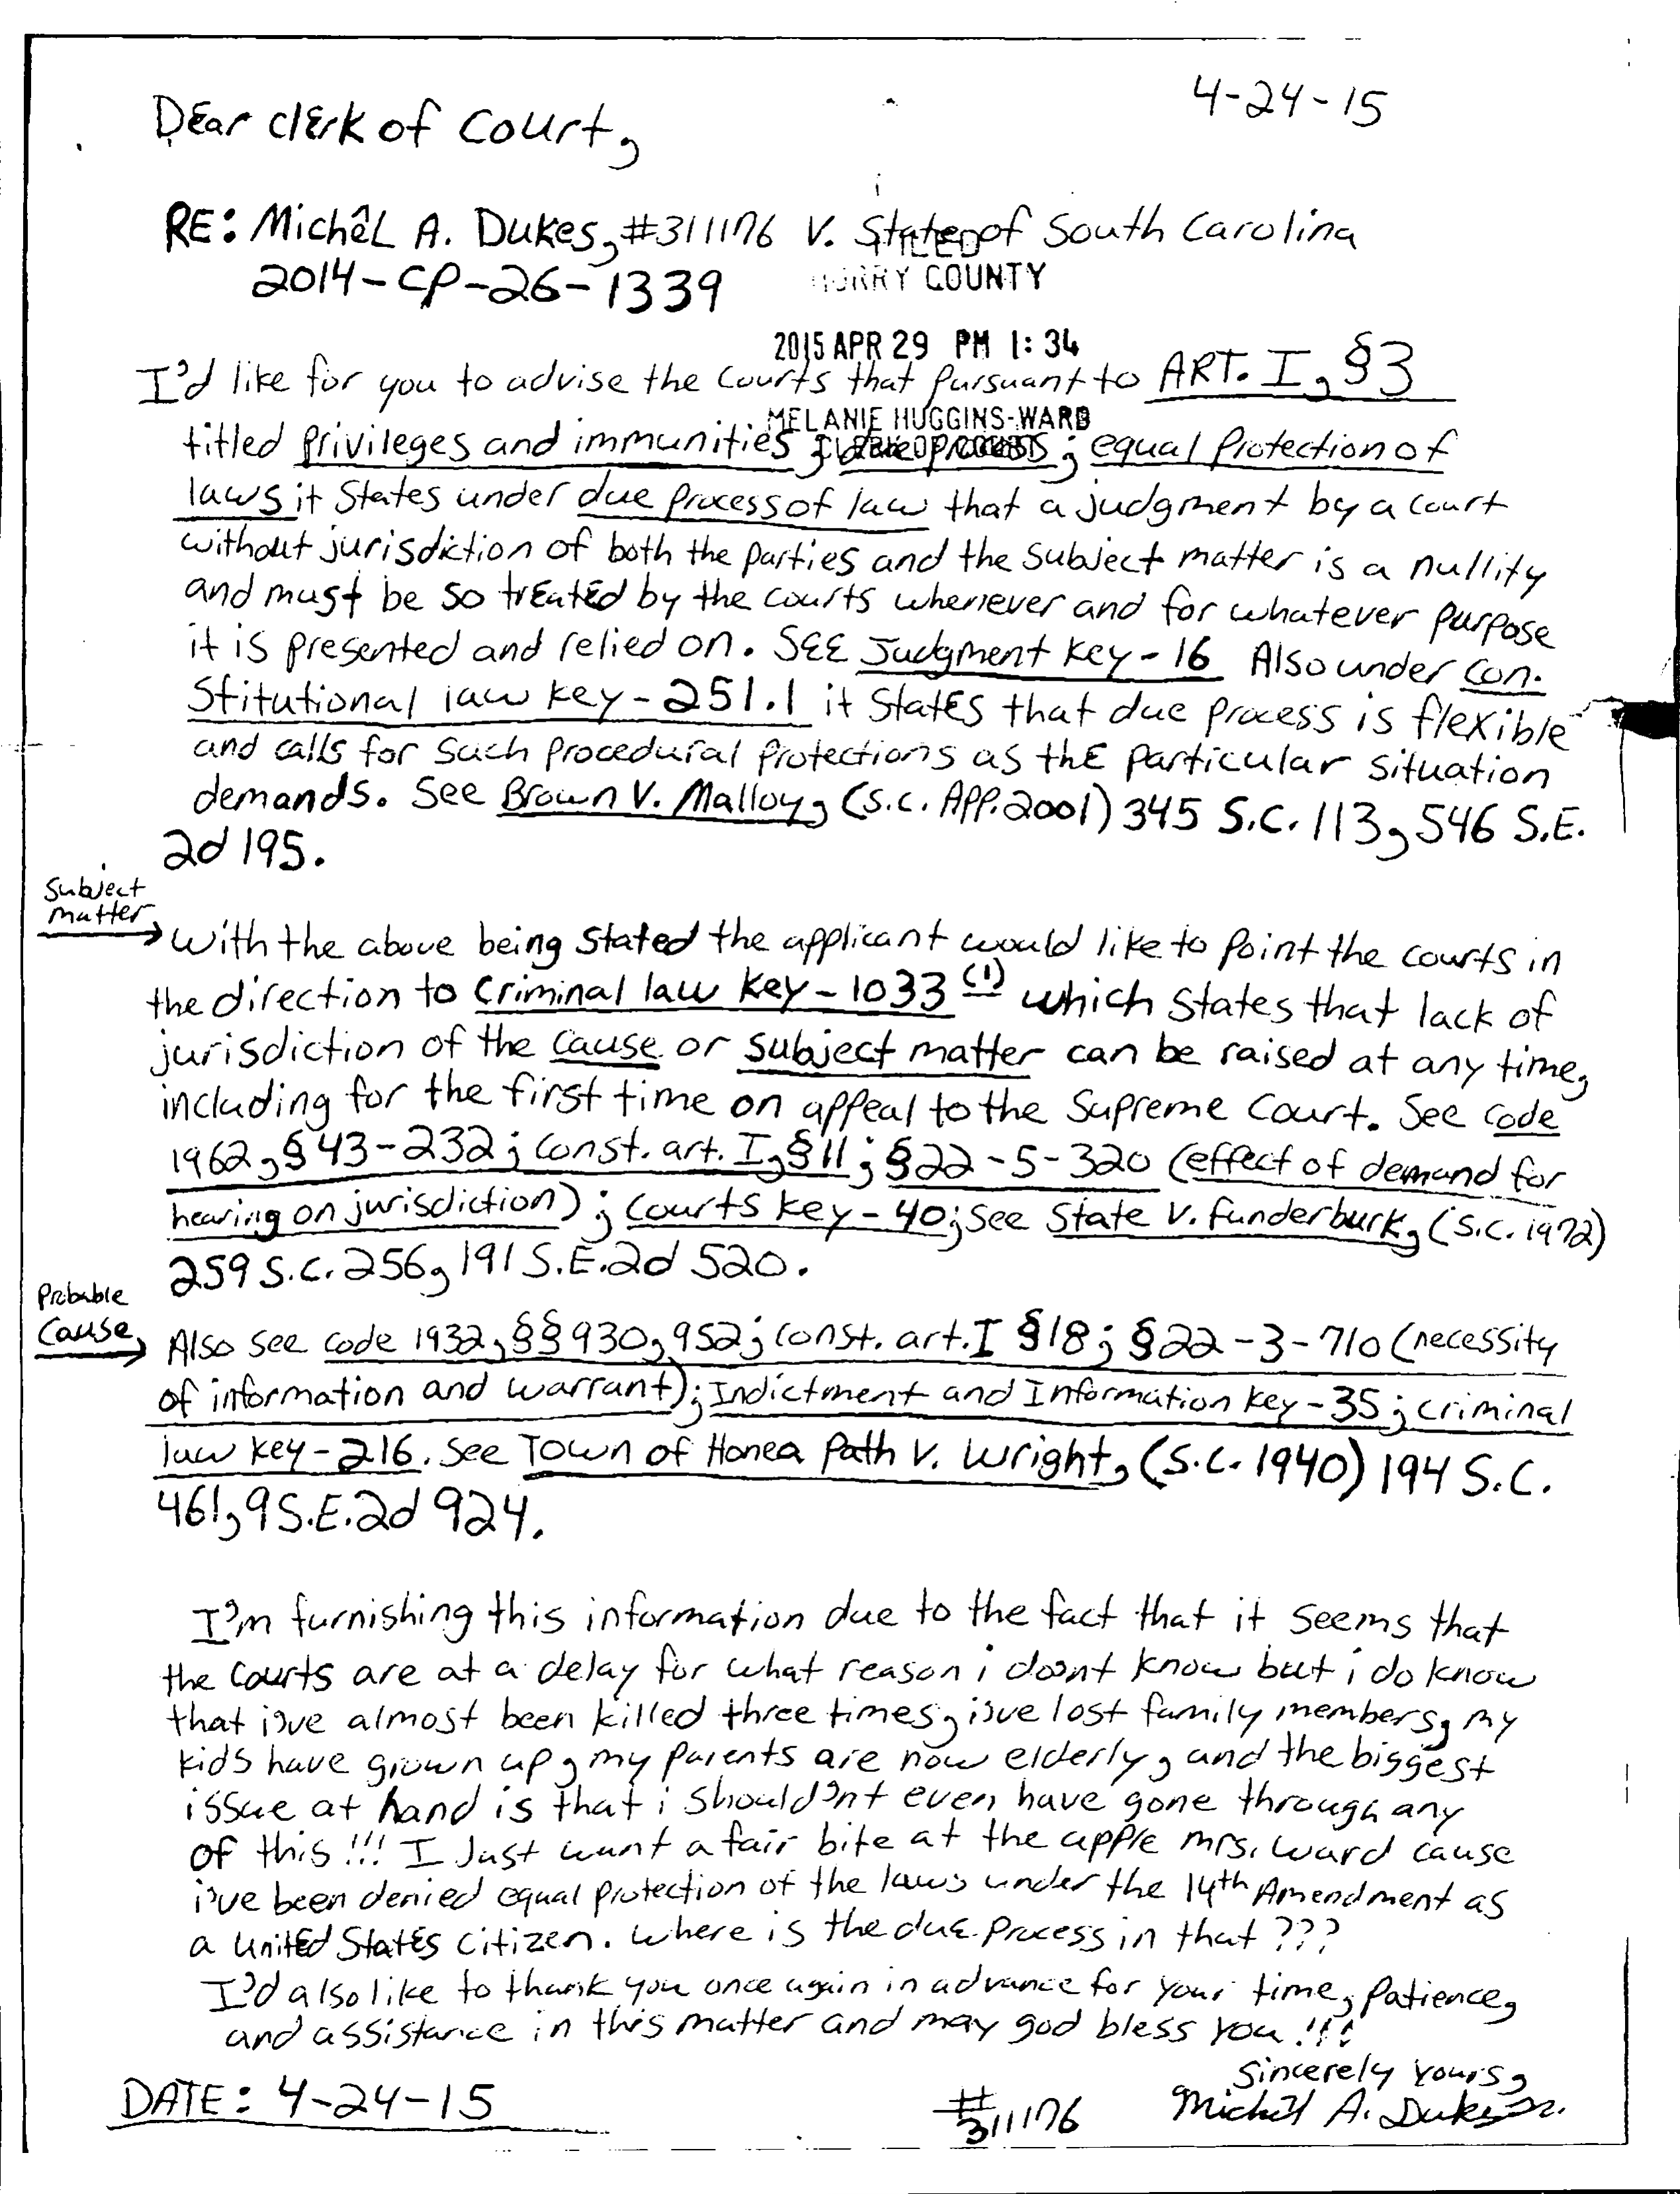 4-24-15
Dear clerk of Court,
RE: Michêl A. Dukes, #311176 V. State of South Carolina
FILED
2014-CP-26-1339
HORRY COUNTY
2015 APR 29 PM 1:34
I'd like for you to advise the courts that pursuant to ART. I, §3
MELANIE HUGGINS-WARD
titled privileges and immunities; due process; equal Protection of
CLERK OF COURT
laws it States under due process of law that a judgment by a court
without jurisdiction of both the parties and the subject matter is a nullity
and must be so treated by the courts whenever and for whatever purpose
it is presented and relied on. SEE Judgment Key-16 Also under con-
stitutional law key-251.1 it States that due process is flexible
and calls for such procedural protections as the particular situation
demands. See Brown V. Malloy, (S.C. APP. 2001) 345 S.C. 113, 546 S.E.
2d 195.
Subject
matter
With the above being stated the applicant would like to point the courts in
the direction to Criminal law Key-1033 (1) which states that lack of
jurisdiction of the cause or subject matter can be raised at any time,
including for the first time on appeal to the Supreme Court. See code
1962, §43-232; const. art. I, §11; §22-5-320 (effect of demand for
hearing on jurisdiction); Courts key-40; See State V. Funderburk, (S.C. 1972)
259 S.C. 256, 191 S.E.2d 520.
Probable
Cause
Also see code 1932, §§930, 952; const. art. I §18; §22-3-710 (necessity
of information and warrant); Indictment and Information key-35; criminal
law key-216. See Town of Honea Path V. Wright, (S.C. 1940) 194 S.C.
461, 9 S.E.2d 924.
I'm furnishing this information due to the fact that it seems that
the courts are at a delay for what reason i don't know but i do know
that i've almost been killed three times, i've lost family members, my
kids have grown up, my parents are now elderly, and the biggest
issue at hand is that i should'nt even have gone through any
of this!!! I Just want a fair bite at the apple mrs. Ward cause
i've been denied equal protection of the laws under the 14th Amendment as
a United States citizen. Where is the due process in that???
I'd also like to thank you once again in advance for your time, patience,
and assistance in this matter and may god bless you!!!
Sincerely yours,
DATE: 4-24-15
#311176
Michêl A. Dukes Sr.